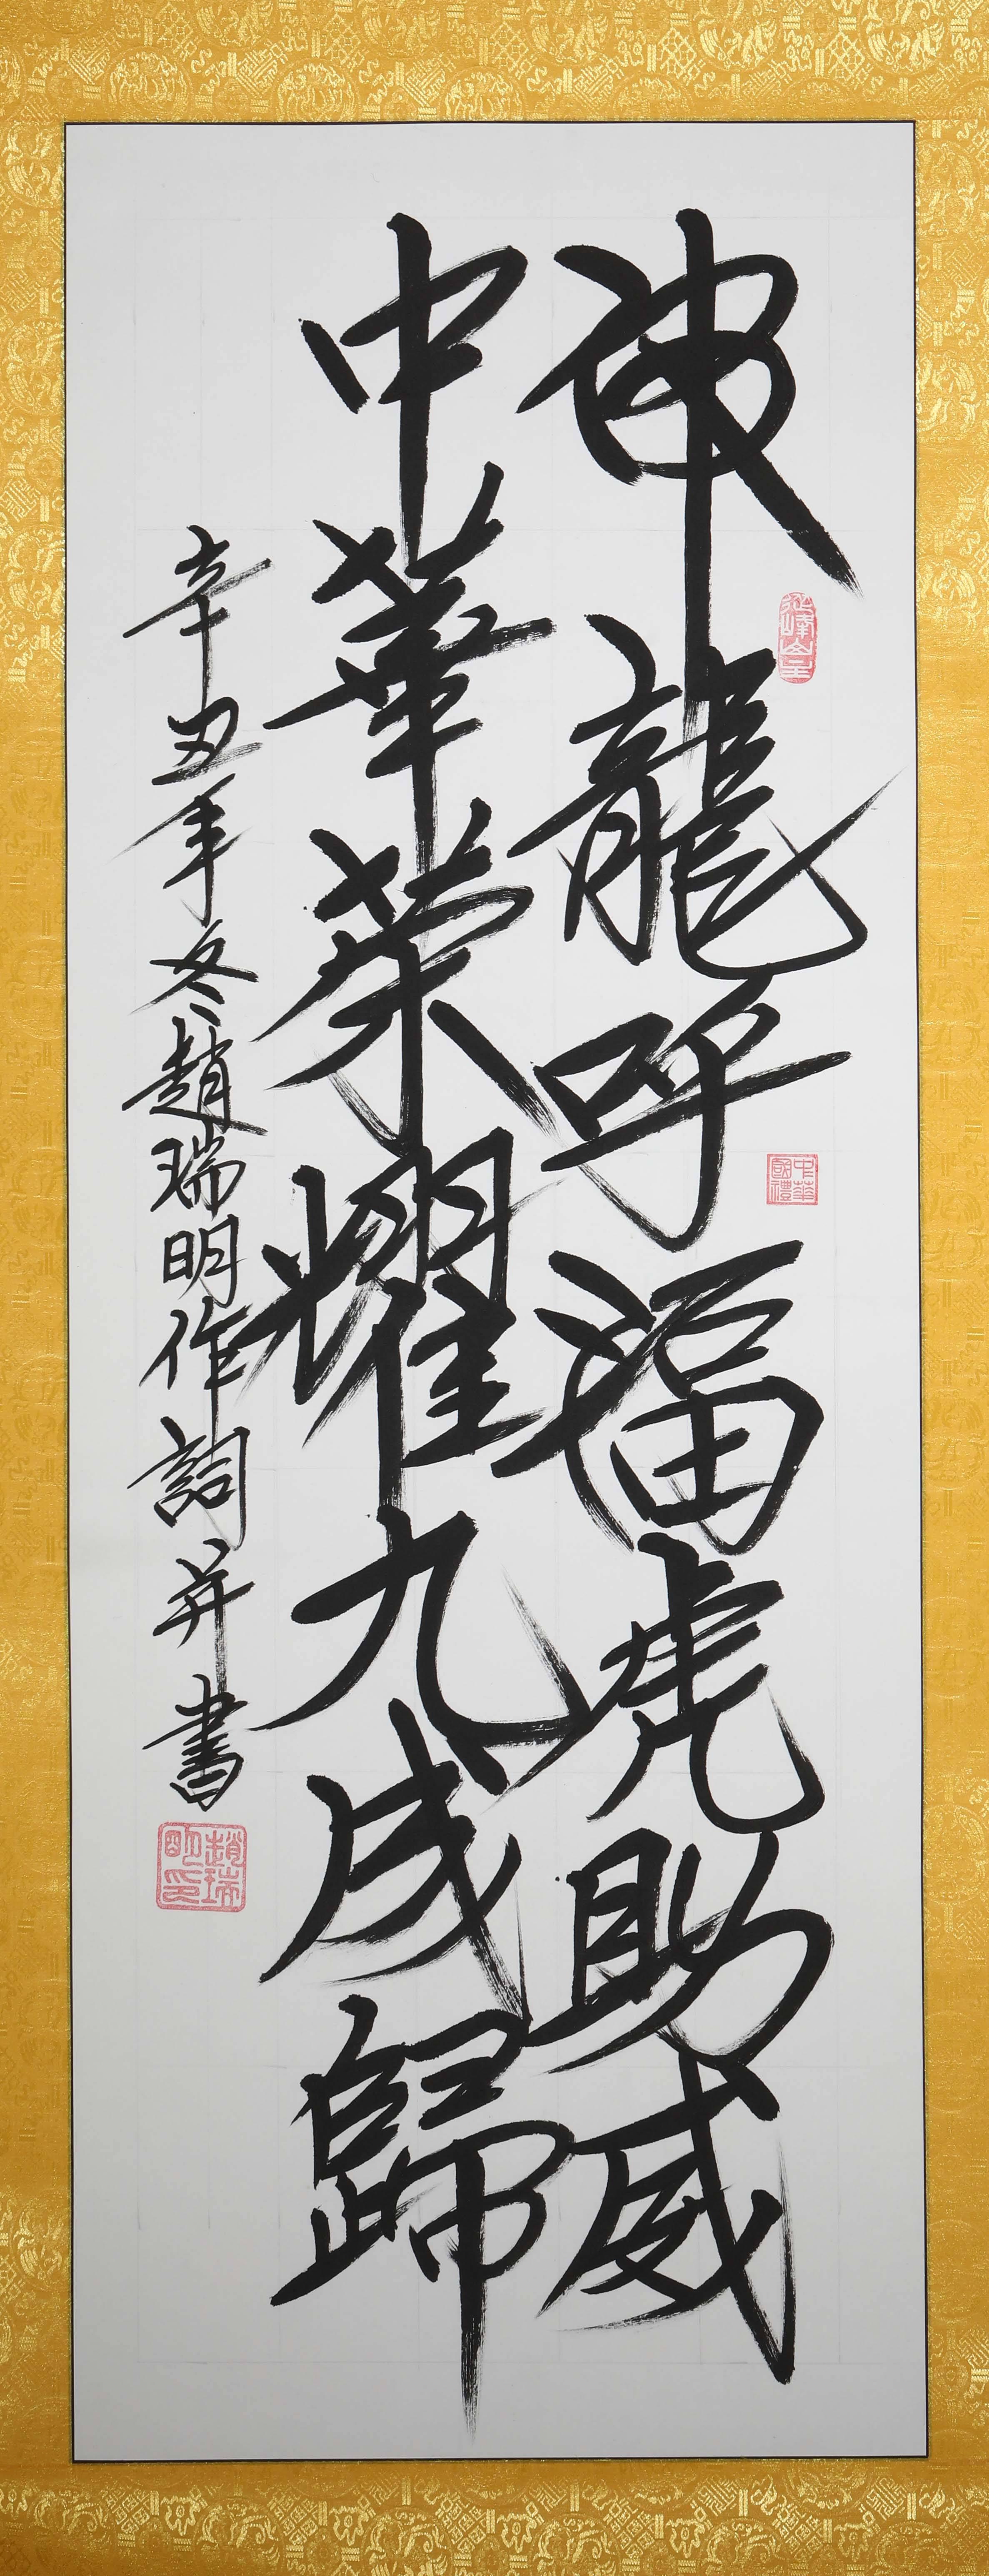 神龍呼福虎助威
中華榮耀九成歸
辛丑年冬趙瑞明作詞并書
中華國禮
趙瑞明印